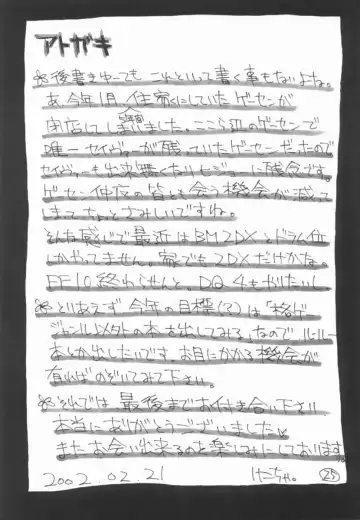 アトガキ
※後書きゆーても これといって書く事もないよな。
あ、今年1月、住家にしていたゲーセンが
閉店してしまいました。ここら辺のゲーセンで
唯一セイヴァーが残っていたゲーセンだったので
セイヴァーも出来無くなりヒジョーに残念です。
ゲーセン仲間の皆とも会う機会が減って
しまってちょっとさみしいですね。
そんな感じで最近はBM2DXとドラム位
しかやってません。家でも2DXだけかな。
FF10終わらせんと。DQ4もやりたいし
※とりあえず今年の目標(?)は「格ゲー
ジャンル以外の本を出してみる」なので
本とか出したいです。お目にかかる機会が
有ればのぞいてみて下さい。
※それでは最後までお付き合い下さい
本当にありがとうございました
またお会い出来るのを楽しみにしております。
2002.02.21
25